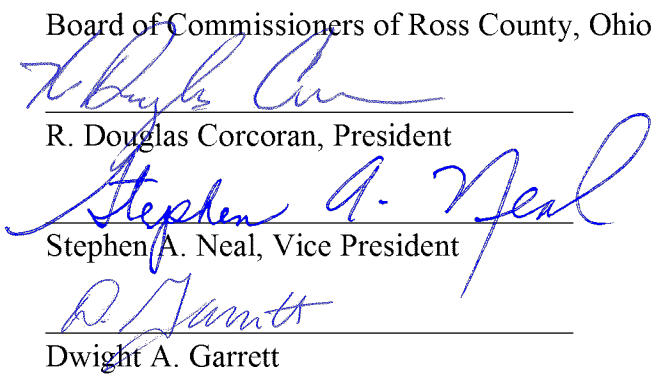 Board of Commissioners of Ross County, Ohio
R. Douglas Cor
R. Douglas Corcoran, President
Stephen A. Neal
Stephen A. Neal, Vice President
D. Garrett
Dwight A. Garrett